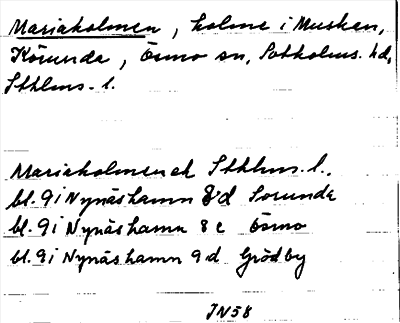 Mariaholmen, holme i Musken,
Körunda, Ösmo sn, Sotholms hd,
Sthlms. l.
Mariaholmen ek Sthlms. l.,
bl. 9i Nynäshamn 8d Sorunda
bl. 9i Nynäshamn 8c Ösmo
bl. 9i Nynäshamn 9d Grödby
JN58